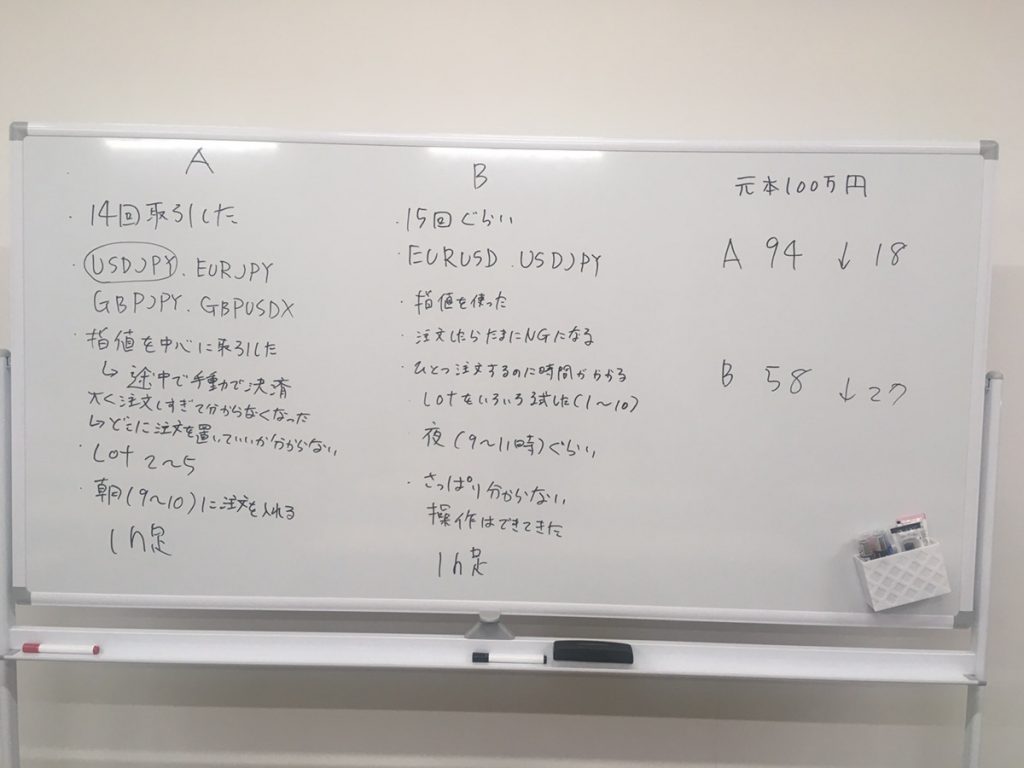 A
・14回取引した
・USDJPY. EURJPY
GBPJPY. GBPUSDX
・指値を中心に取引した
↳ 途中で手動で決済
大く注文しすぎて分からなくなった
↳どこに注文を置いていいか分からない
・Lot 2〜5
・朝(9〜10)に注文を入れる
1h足
B
・15回ぐらい
EURUSD. USDJPY
・指値を使った
・注文したらたまにNGになる
・ひとつ注文するのに時間がかかる
Lotをいろいろ試した(1〜10)
夜(9〜11時)ぐらい
・さっぱり分からない
操作はできてきた
1h足
元本100万円
A 94 ↓ 18
B 58 ↓27